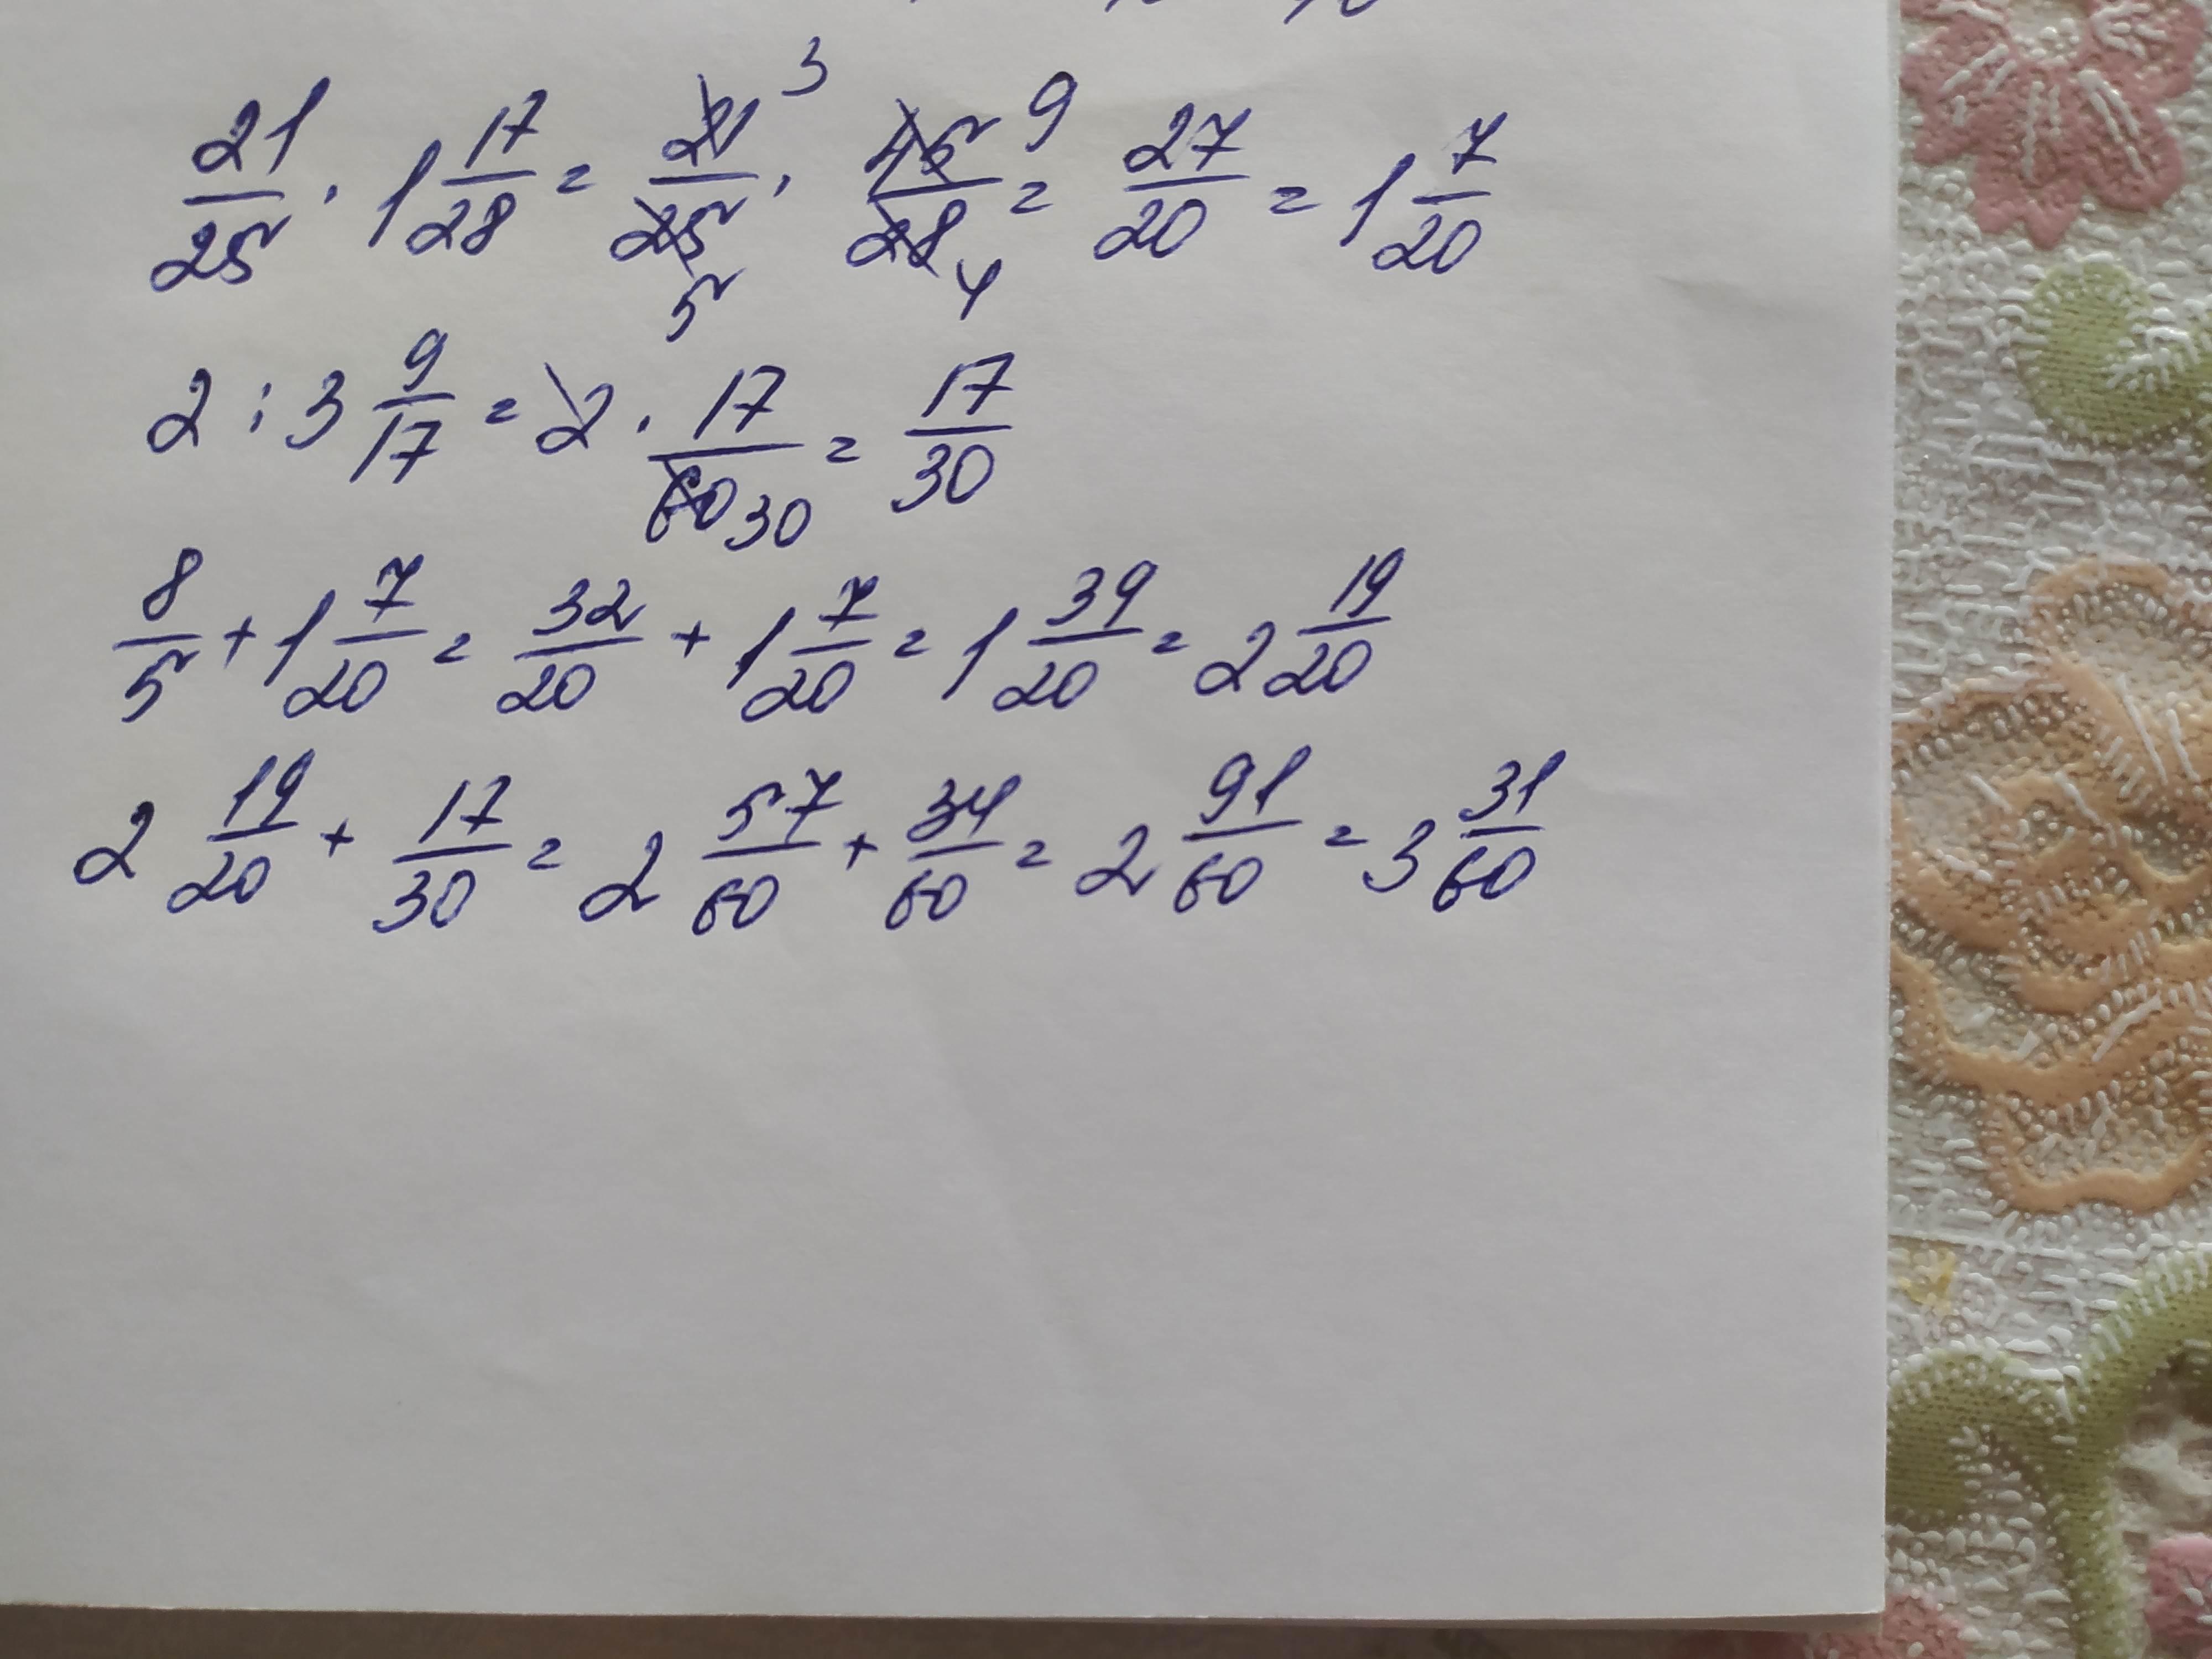 21/25 · 1 17/28 = 21/25 3 5 · 45/28 9 4 = 27/20 = 1 7/20
2 : 3 9/17 = 2 · 17/60 30 = 17/30
8/5 + 1 7/20 = 32/20 + 1 7/20 = 1 39/20 = 2 19/20
2 19/20 + 17/30 = 2 57/60 + 34/60 = 2 91/60 = 3 31/60